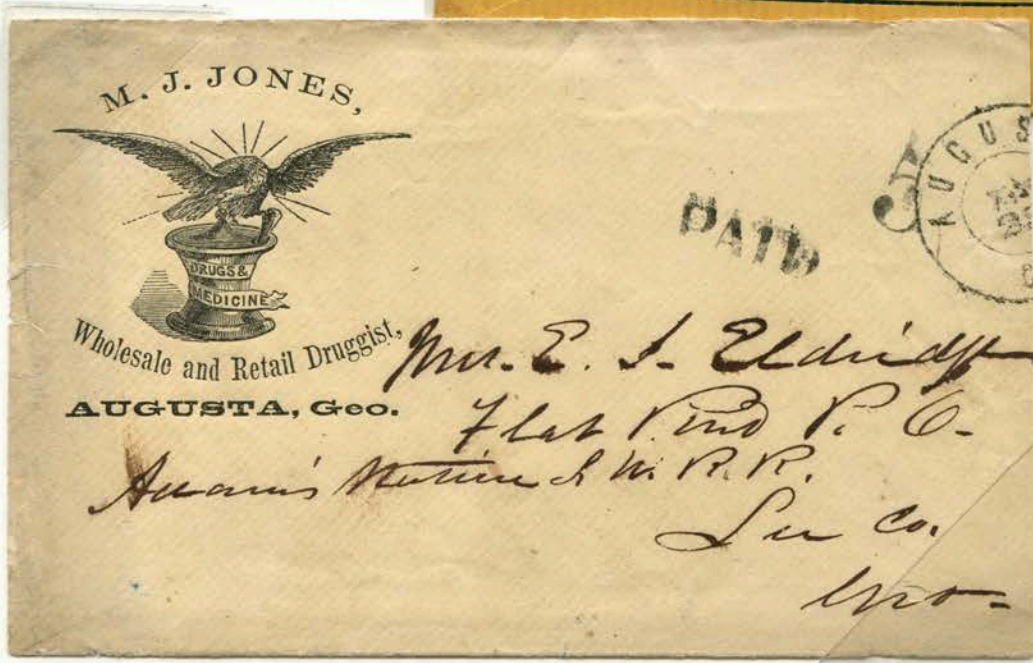 M. J. JONES,
DRUGS &
MEDICINE
Wholesale and Retail Druggist,
AUGUSTA, Geo.
PAID
5
AUGUS
Mrs. E. S. Eldridge
Flat Pond P. O.
Adams Station S. W. R. R.
Lee Co.
Geo-